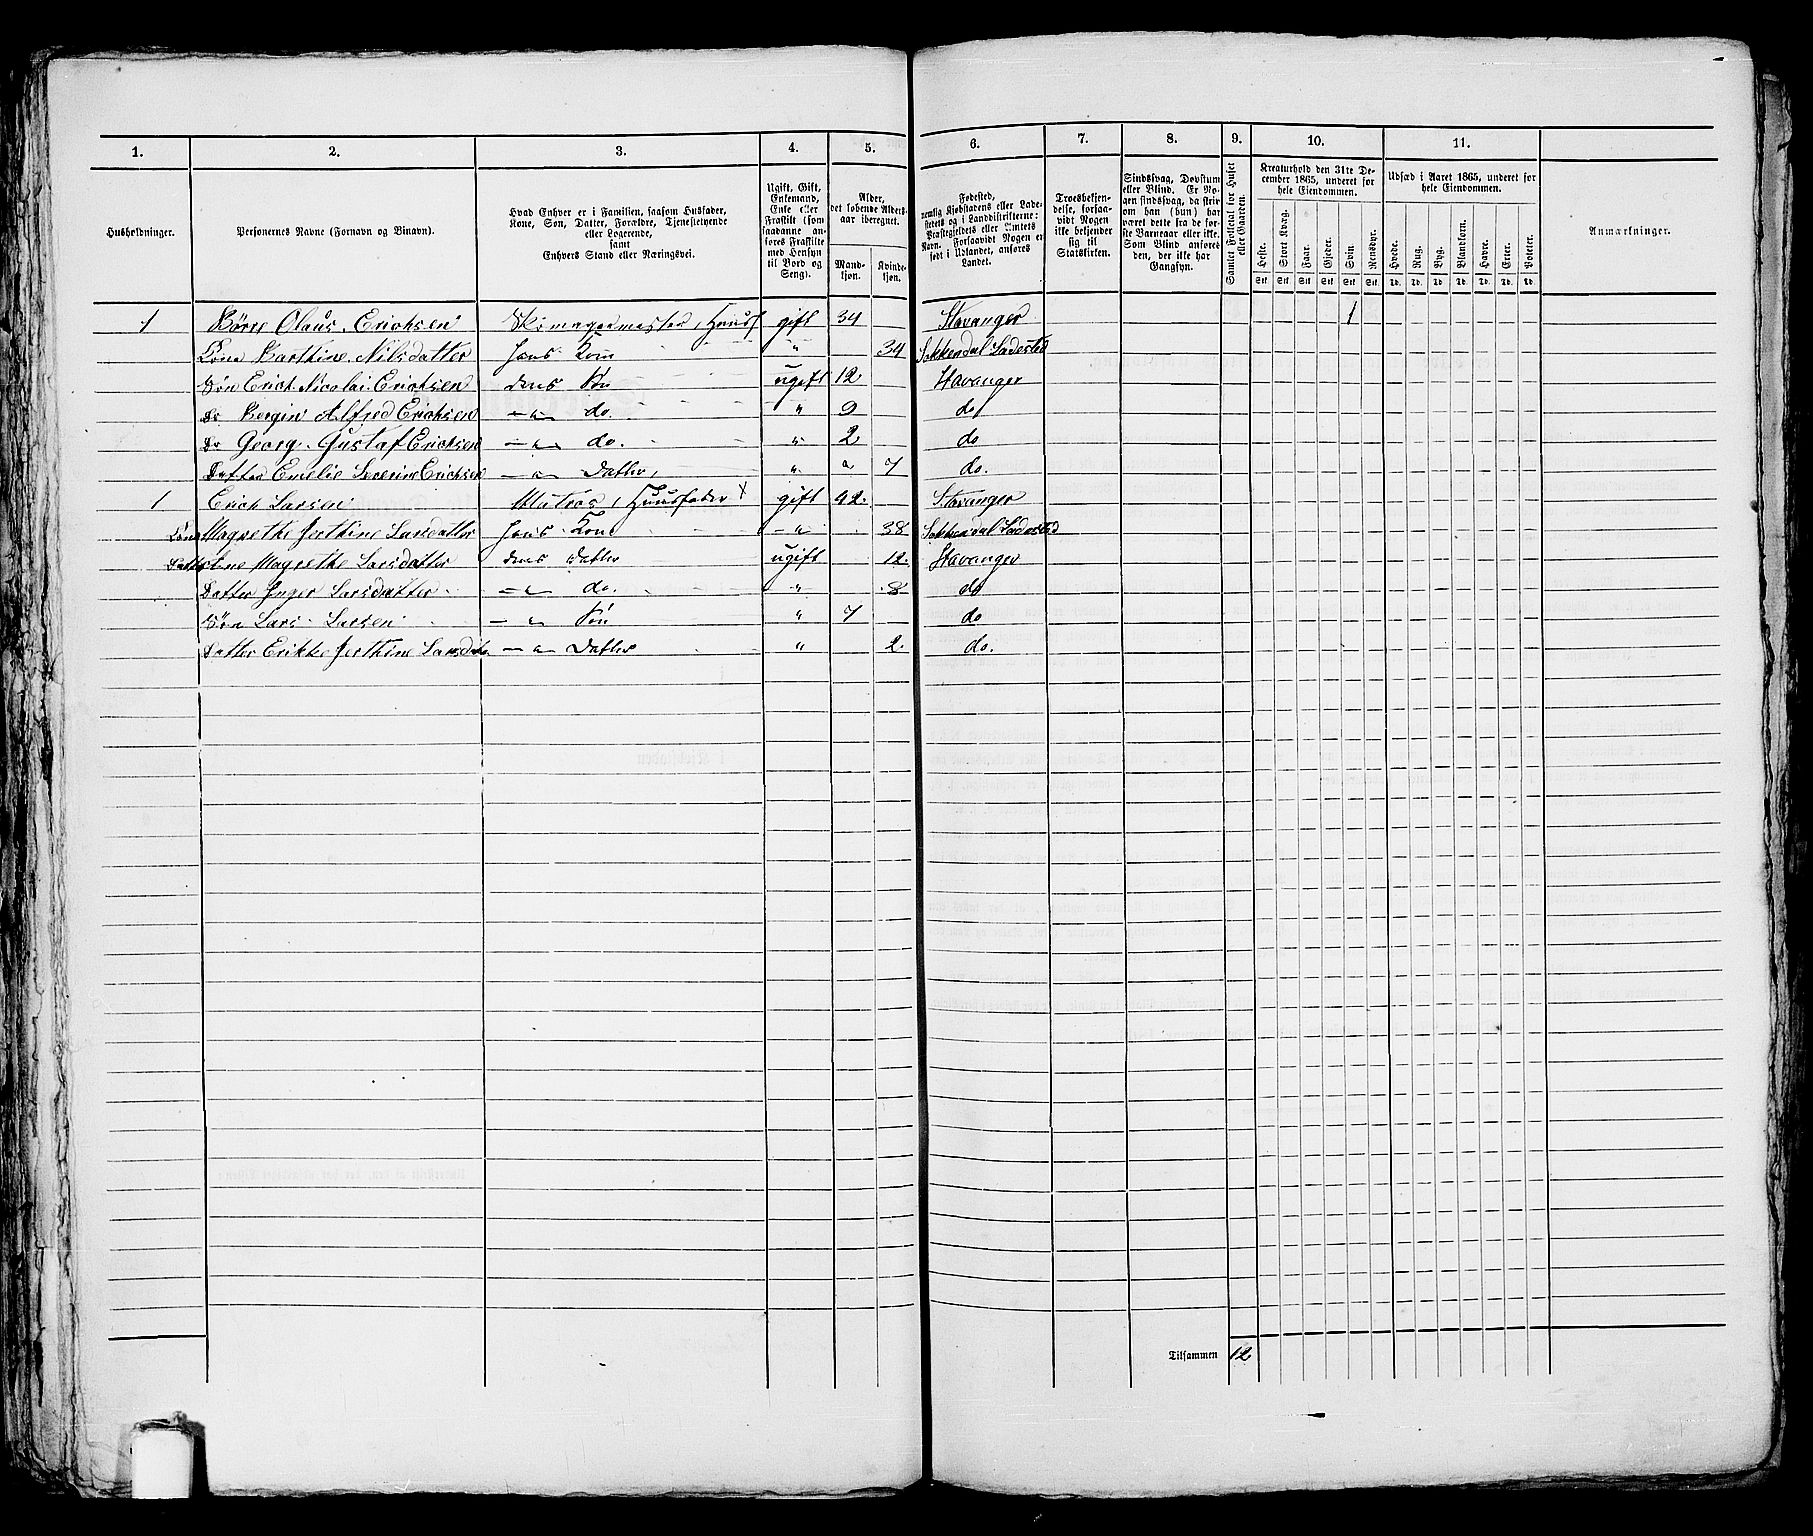 1. 2. 3. 4. 5. 6. 7. 8. 9. 10. 11.
Husholdninger.
Personernes Navne (Fornavn og Binavn).
Hvad Enhver er i Familien, saasom Husfader,
Kone, Søn, Datter, Forældre, Tjenestetyende
eller Logerende,
samt
Enhvers Stand eller Næringsvei.
Ugift, Gift,
Enkemand,
Enke eller
Fraskilt (som
saadanne an-
føres Fraskilte
med Hensyn
til Bord og
Seng).
Alder,
det løbende Alders-
aar iberegnet.
Mand-
kjøn.
Kvinde-
kjøn.
Fødested,
nemlig Kjøbstadens eller Lade-
stedets og i Landdistrikterne:
Præstegjeldets eller Amtets
Navn. Forsaavidt Nogen er
født i Udlandet, anføres
Landet.
Troesbekjen-
delse, forsaa-
vidt Nogen
ikke bekjender
sig til
Statskirken.
Sindssvag, Døvstum
eller Blind. Er No-
gen sindssvag, da skri-
ves om han (hun) har
været dette fra de før-
ste Barneaar eller ikke.
Som Blind anføres
den, der ikke har
Gangsyn.
Samlet Folketal for Huset
eller Gaarden.
Kreaturhold den 31te De-
cember 1865, underet for
hele Eiendommen.
Heste. Stort Kvæg. Faar. Gjeder. Svin. Rensdyr.
Stk. Stk. Stk. Stk. Stk. Stk.
Udsæd i Aaret 1865, underet for
hele Eiendommen.
Hvede. Rug. Byg. Blandkorn. Havre. Erter. Poteter.
Td. Td. Td. Td. Td. Td. Td.
Anmærkninger.
1 Børre Olaus Erichsen Skomagermester, Huusf gift 34 Stavanger 1
Kone Barthine Nilsdatter Hans Kone " 34 Sokkendal Ladested
Søn Erich Nicolai Erichsen deres Søn ugift 12 Stavanger
Do Bergin Alfred Erichsen — " — do. " 9 do
Do Georg Gustaf Erichsen — " — do. " 2 do
Datter Emelie Severine Erichsen — " — Datter, " " 7 do.
1 Erich Larsen Matros, Huusfader x gift 42. Stavanger
Kone Magrethe Jerthine Larsdatter Hans Kone — " 38 Sokkendal Ladested
Datter Ane Magrethe Larsdatter deres Datter ugift 12. Stavanger
Datter Inger Larsdatter — " — do. " 8 do
Søn Lars Larsen — " Søn " 7 do
Datter Erikke Jerthine Larsdtr. — " — Datter " 2. do.
Tilsammen 12